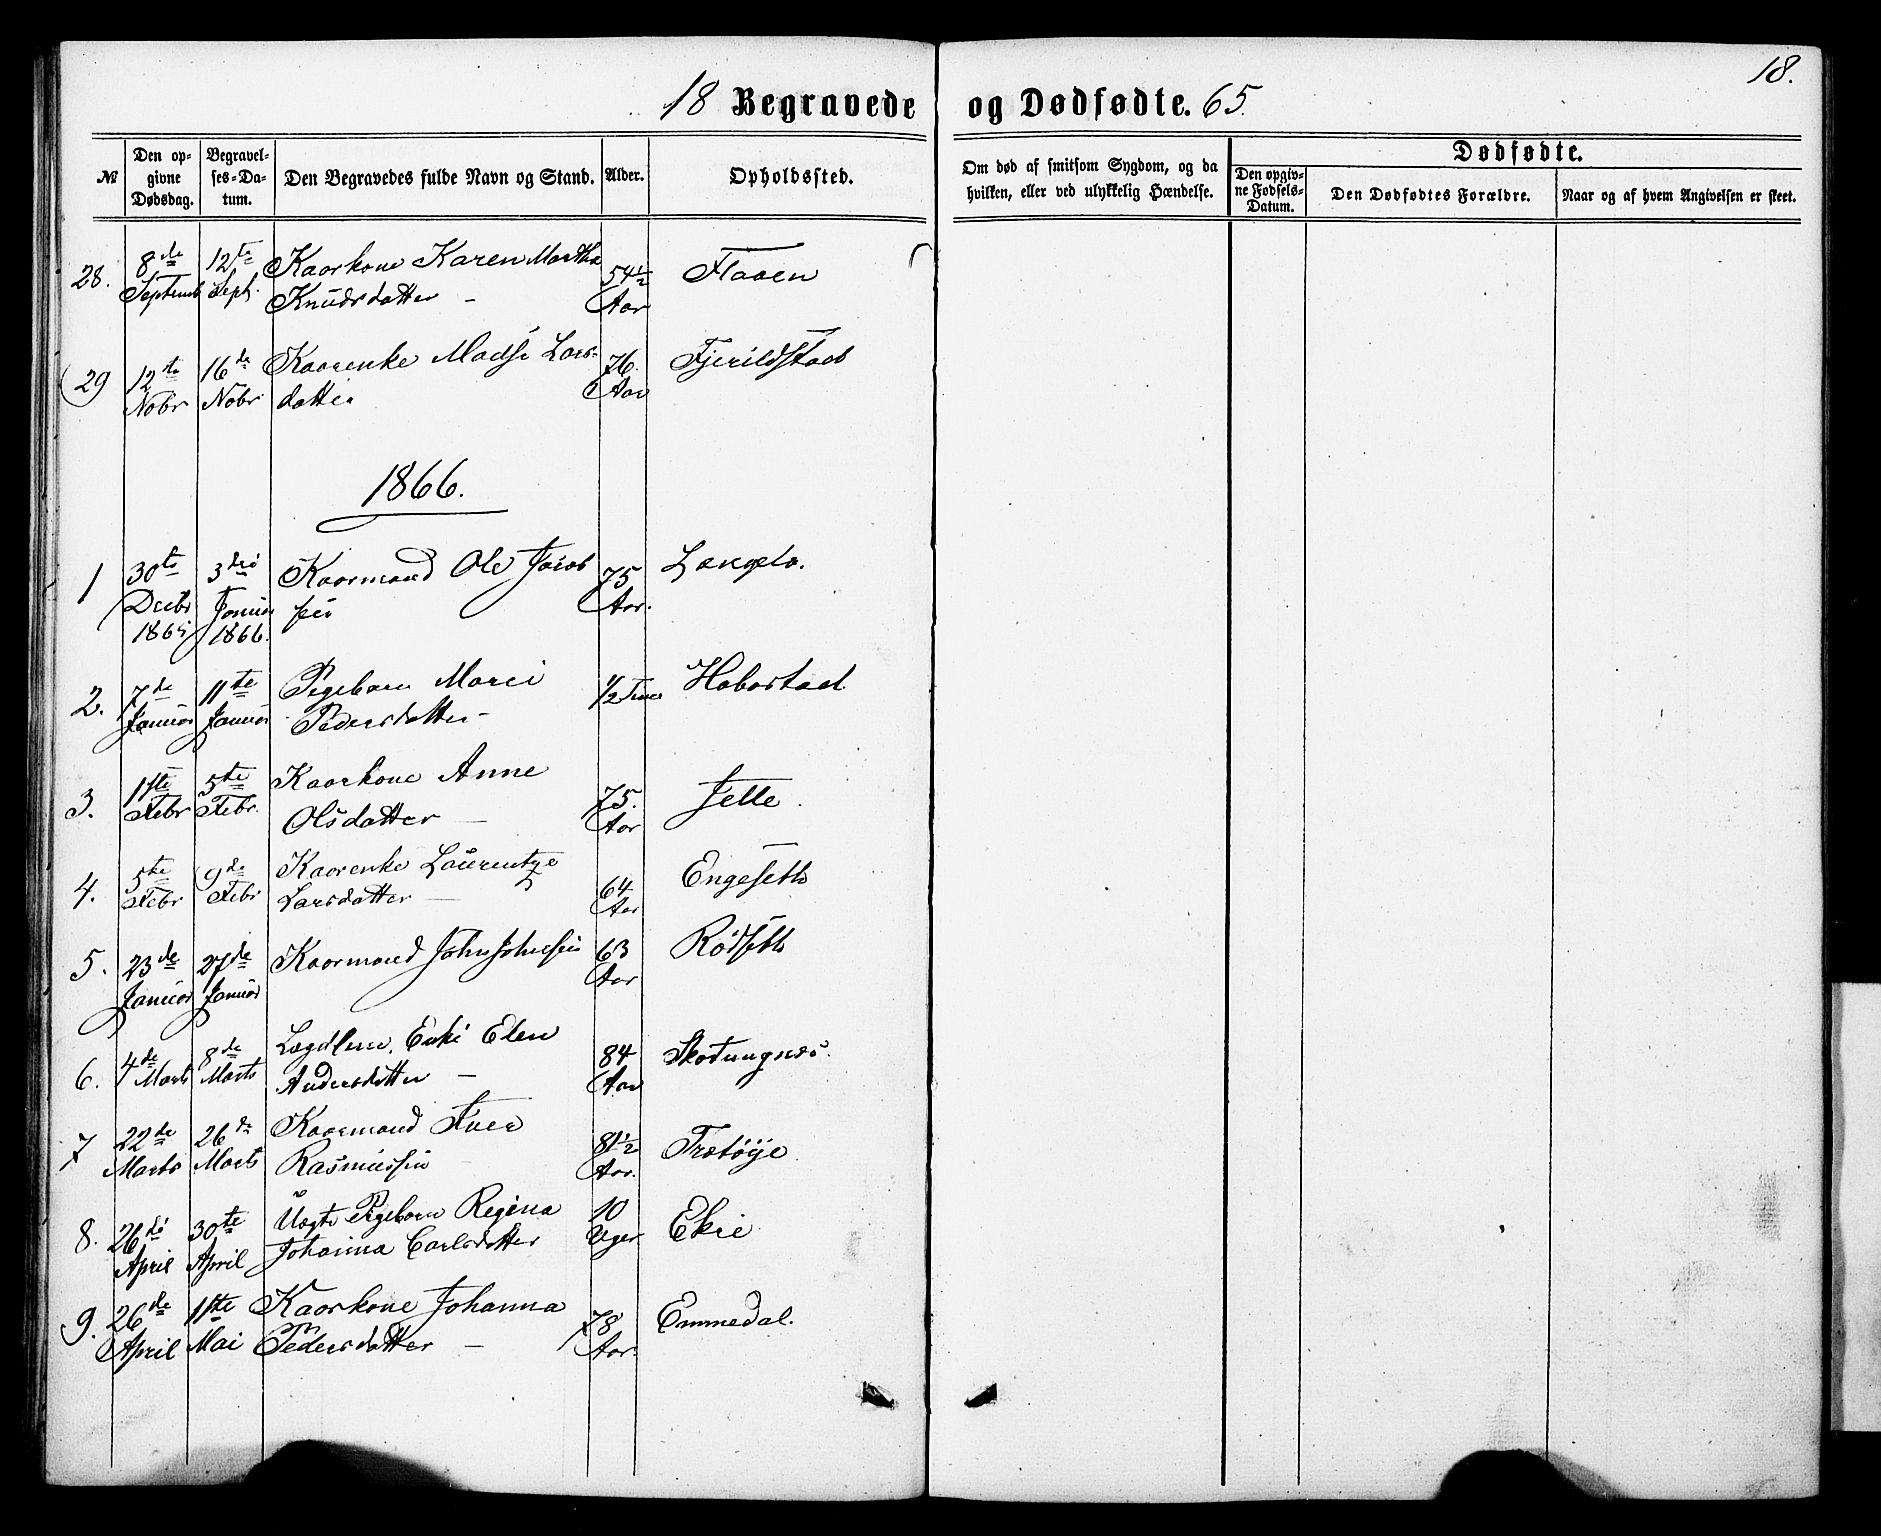 18.
18 Begravede og Dødfødte. 65.
№
Den opgivne Dødsdag.
Begravelses-Datum.
Den Begravedes fulde Navn og Stand.
Alder.
Opholdssted.
Om død af smitsom Sygdom, og da hvilken, eller ved ulykkelig Hændelse.
Dødfødte.
Den opgivne Fødsels-Datum.
Den Dødfødtes Forældre.
Naar og af hvem Angivelsen er skeet.
28. 8de Septemb 12te Sept. Kaarkone Karen Martha Knudsdatter - 54½ Aar Flaaen
29 12te Nobr 16de Nobr Kaarenke Madsi Larsdatter 76. Aar Fjerildstad
1866.
1 30te Decbr 1865 3die Januar 1866. Kaarmand Ole Jacobsen 75 Aar. Langelo.
2. 7de Januar 11te Januar Pigebarn Marei Pedersdatter - ½ Time Habostad
3. 1ste Febr 5te Febr. Kaarkone Anne Olsdatter - 75. Aar Sette.
4. 5te Febr 9de Febr Kaarenke Laurentze Larsdatter - 64 Aar Engeseth
5. 23de Januar 27de Januar Kaarmand John Johnsen 63 Aar Rødseth
6. 4de Marts 8de Marts Lægdlem, Enke Elen Andersdatter - 84 Aar Skotungnes.
7 22de Marts 26de Marts Kaarmand Iver Rasmussen 81½ Aar. Tretøye
8. 26de April 30te April Uægte Pigebarn Regina Johanna Carlsdatter 10 Uger Ekre
9. 26de April 1ste Mai Kaarkone Johanna Pedersdatter - 78 Aar. Emmedal.